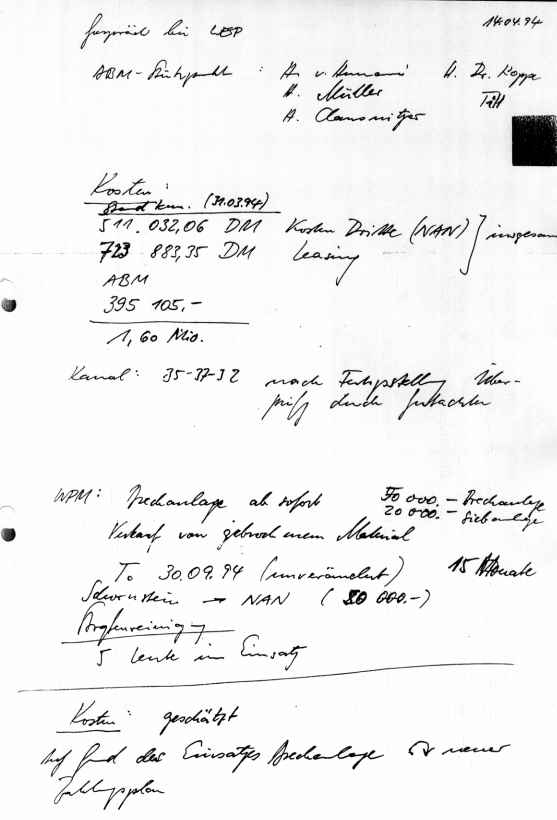 Gespräch bei LESP 14.04.94
ABM-Stützpunkt : H. v. H. Dr. Koppe
H. Müller
H. Clausnitzer
Kosten:
(31.03.94)
511.032,06 DM Kosten Dritte (NAN) insgesam
723 883,35 DM Leasing
ABM
395 105,-
1,60 Mio.
Kanal: 35-37-32 nach Fertigstellung Über-
prüfg durch Gutachter
WPM: Brechanlage ab sofort 50 000.- Brechanlage
20 000.- Siebanlage
Verkauf von gebrochenem Material
To 30.09.94 (unverändert) 15 Monate
Schornstein → NAN ( 20 000.-)
5 Leute im Einsatz
Kosten: geschätzt
Auf Grund des Einsatzes Brechanlage neuer
Zahlungsplan